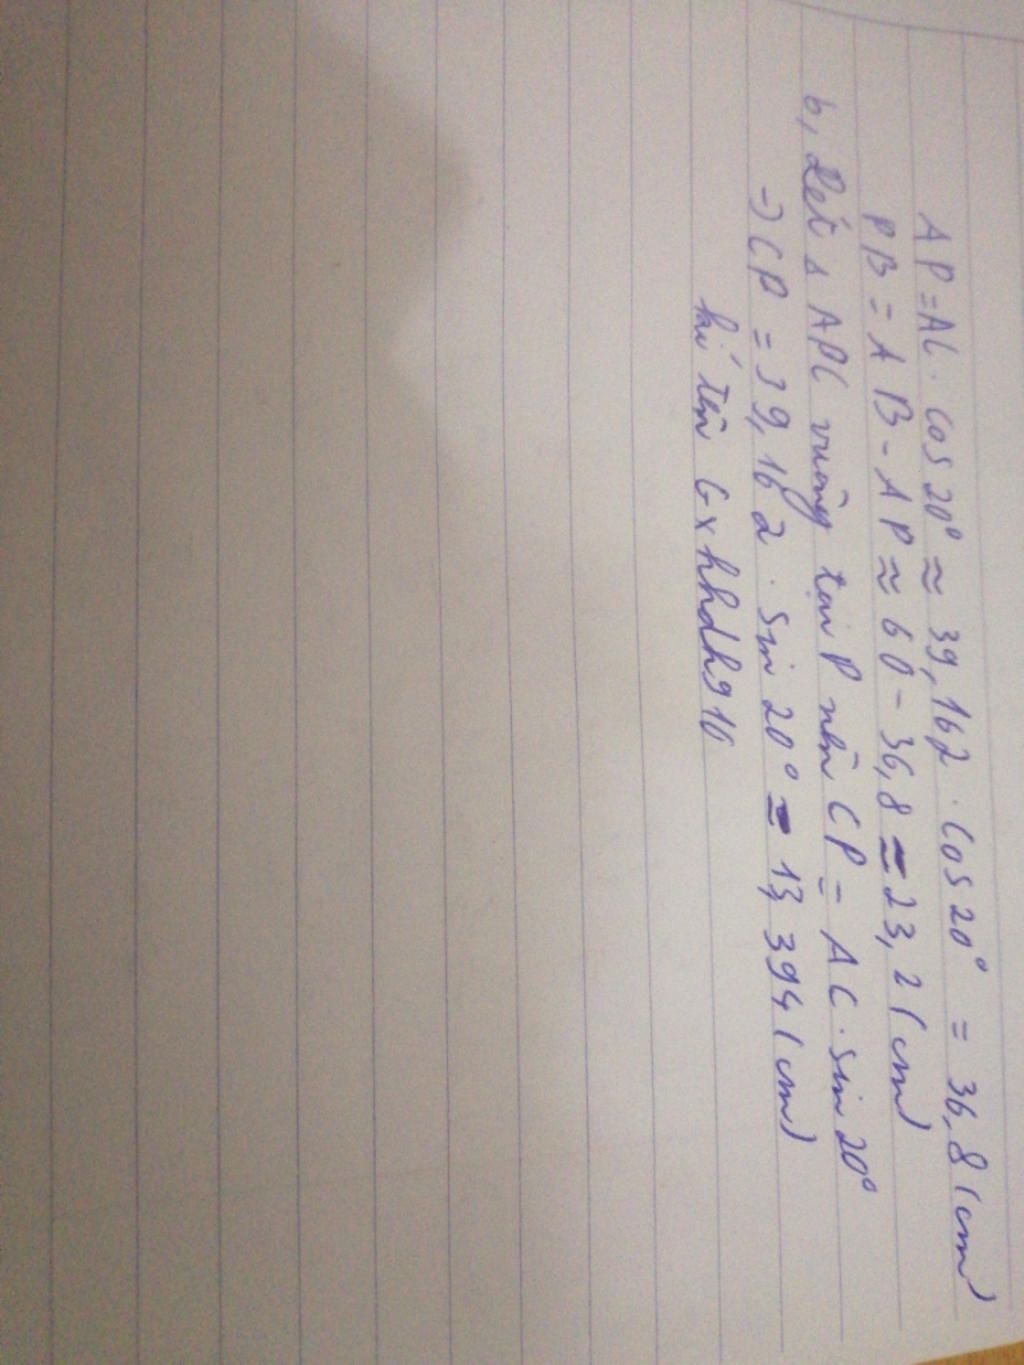 AP = AC . cos 20° ≈ 39,162 . cos 20° = 36,8 (cm)
PB = AB - AP ≈ 60 - 36,8 = 23,2 (cm)
b, Xét Δ APC vuông tại P nên CP = AC . sin 20°
→ CP = 39,162 . sin 20° = 13,394 (cm)
kí tên Gxhhdhg16